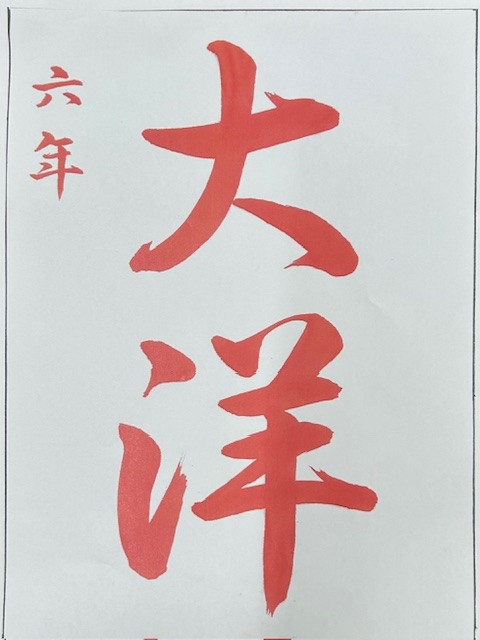 大洋
六年